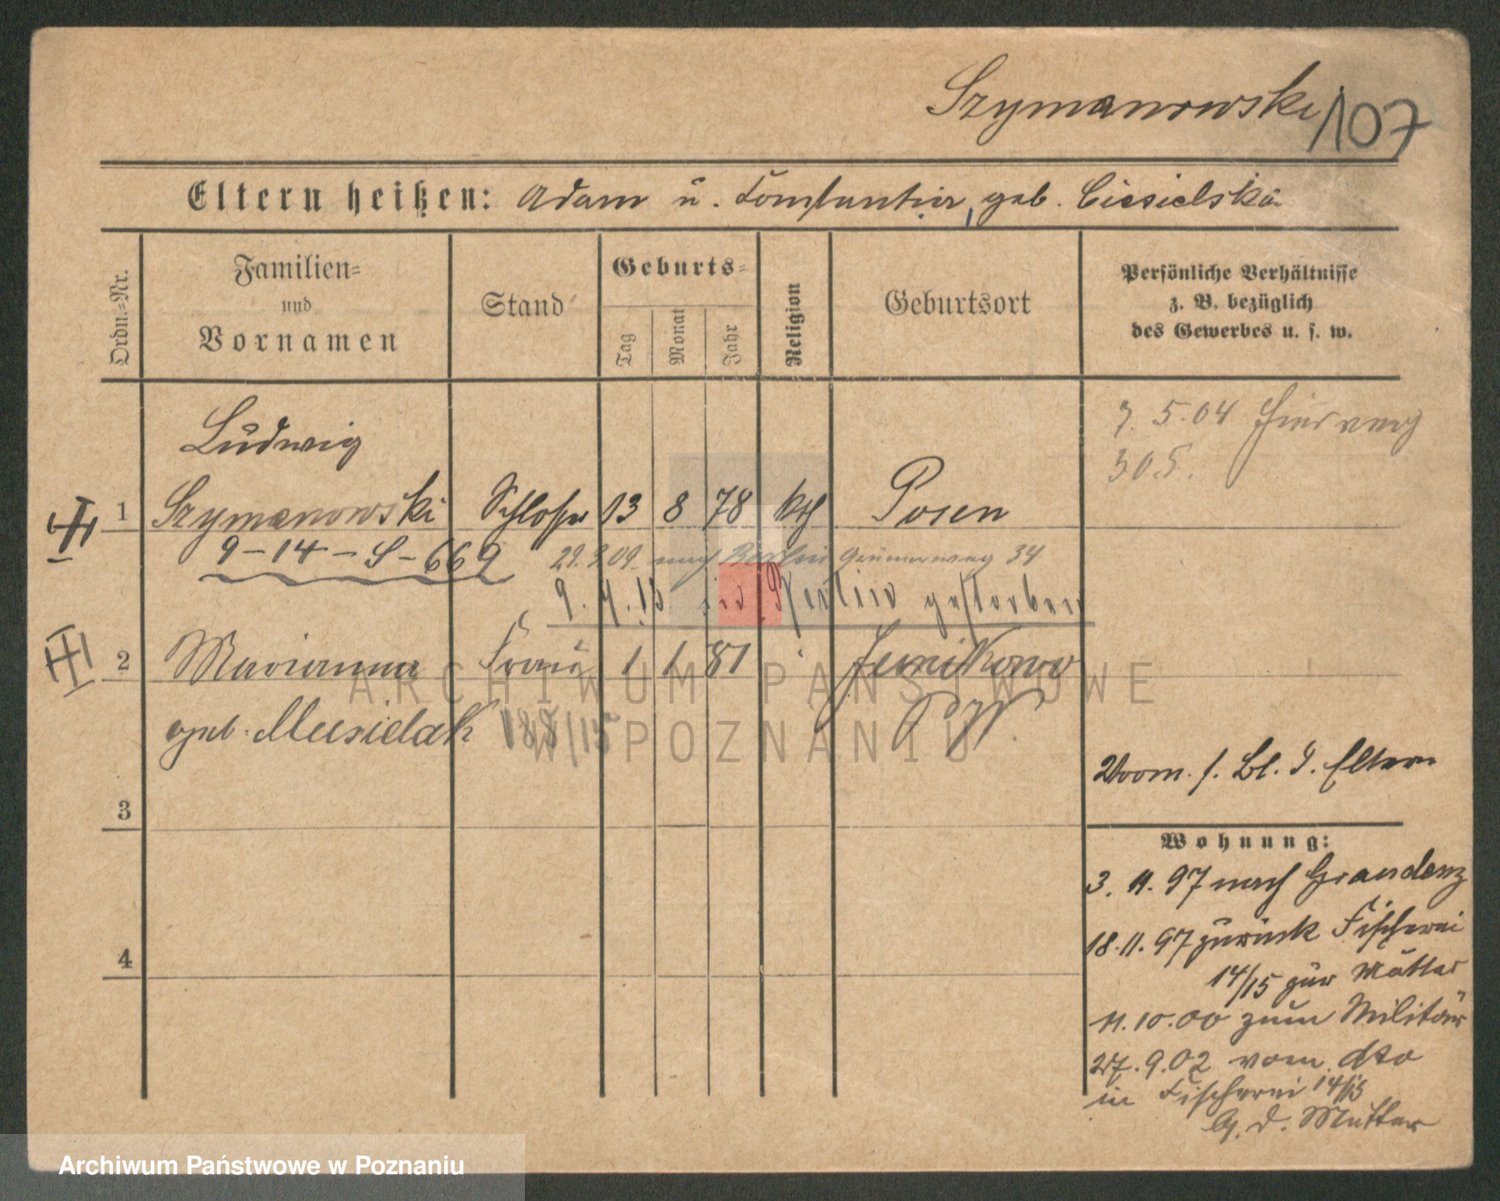 Szymanowski 107
Eltern heißen: Adam u. Constantia, geb. Ciesielska
Ordn.=Nr.
Familien=
und
Vornamen
Stand
Geburts=
Tag
Monat
Jahr
Religion
Geburtsort
Persönliche Verhältnisse
z. B. bezüglich
des Gewerbes u. s. w.
7. 5. 04
305.
Ludwig
1 Szymanowski Schlosser 13 8 78 kth Posen
9-14-S-669
nach Berlin Grünerweg 34
in Berlin gestorben
2 Marianna Frau 1 1 81
geb. Musielak
Eltern
3
Wohnung:
3. 11. 97 nach Graudenz
18. 11. 97 zurück Fischerei
14/15 zur Mutter
11. 10. 00 zum Militär
27. 9. 02 vom dto
in Fischerei 14/15
b. d. Mutter
4
ARCHIWUM PAŃSTWOWE
W POZNANIU
Archiwum Państwowe w Poznaniu